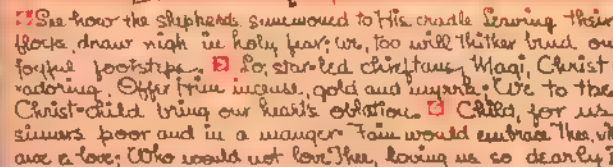 See how the shepherds summoned to His cradle leaving their
flocks, draw nigh in holy fear; we, too will thither bend our
joyful footsteps. Lo, star-led chieftans, Magi, Christ
adoring, Offer Him incense, gold and myrrh; We to the
Christ-child bring our heart's oblation. Child, for us
sinners poor and in a manger Fain would embrace Thee, with
awe & love; Who would not love Thee, loving us so dearly